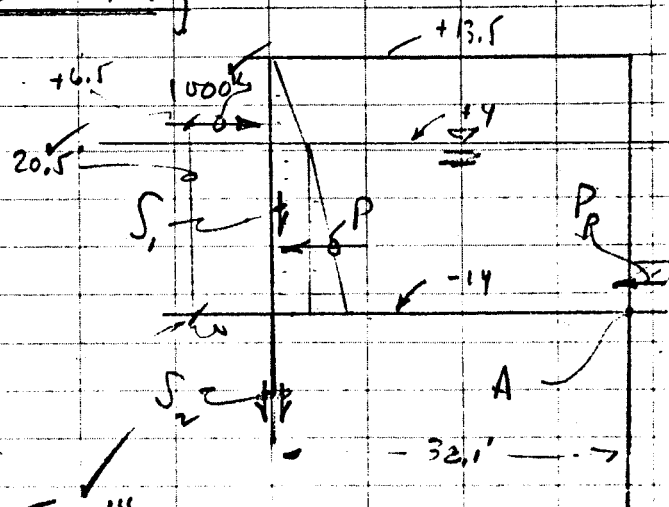 +13.5
+6.5
1000k
+4
20.5'
S1
P
PR
-14
S2
A
32.1'